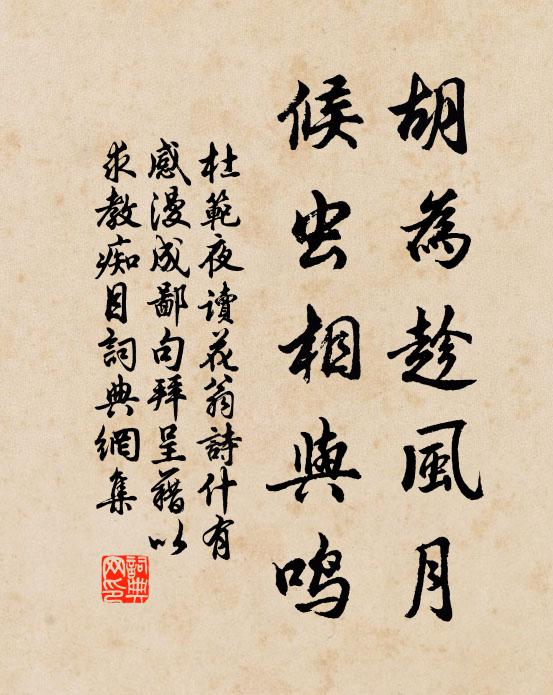 胡為趁風月
候虫相與鳴
杜範夜讀花翁詩什有
感漫成鄙句拜呈藉以
求教痴目詞典網集
詞典
网印